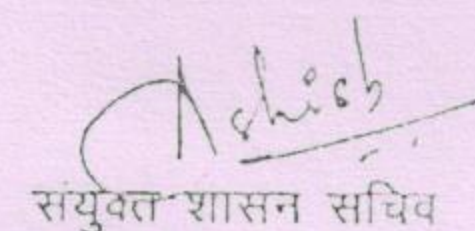 Ashish
संयुक्त शासन सचिव